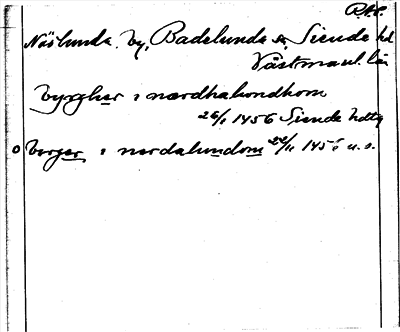 R.A.P.
Näslunda, by, Badelunda sn, Siende hd
Västmanl. län
byrgher i nærdhalundhom
26/1 1456 Siende hdtg
o berger i nerdalundom 22/11 1456 u.s.